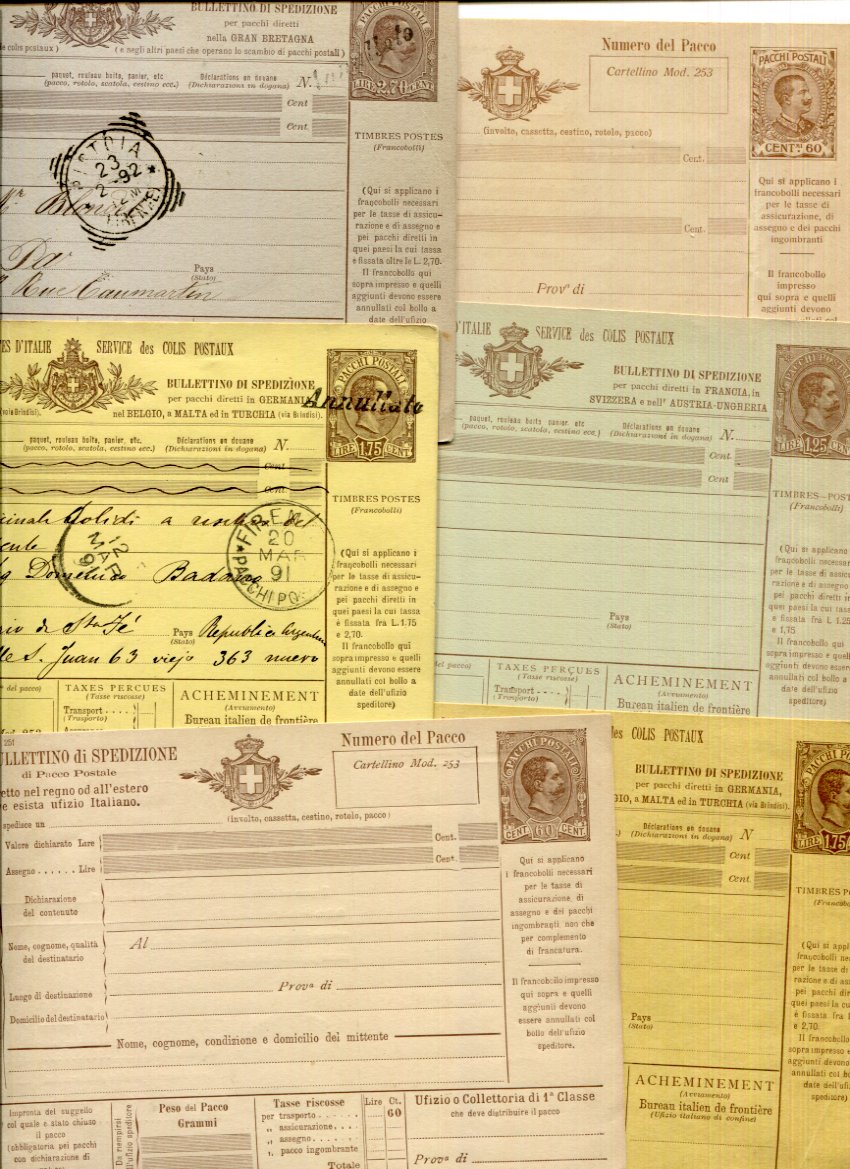 BULLETTINO DI SPEDIZIONE
per pacchi diretti
nella GRAN BRETAGNA
de colis postaux ) ( e negli altri paesi che operano lo scambio di pacchi postali )
paquet, rouleau boîte, panier, etc
(pacco, rotolo, scatola, cestino ecc.)
Déclarations en douane
(Dichiarazioni in dogana)
N.
Cent
Cent
LIRE 2,70 CENT
TIMBRES POSTES
(Francobolli)
(Qui si applicano i
francobolli necessari
per le tasse di assicu-
razione e di assegno e
pei pacchi diretti in
quei paesi la cui tassa
è fissata oltre le L. 2,70.
Il francobollo qui
sopra impresso e quelli
aggiunti devono essere
annullati col bollo a
date dell'ufizio
PISTOIA
23
2-92
12M
(FIRENZE)
Pays
(Stato)
Rue Caumartin
Numero del Pacco
Cartellino Mod. 253
PACCHI POSTALI
CENT.MI 60
(involto, cassetta, cestino, rotolo, pacco)
Cent.
Cent.
Prov.a di
Qui si applicano i
francobolli necessari
per le tasse di
assicurazione, di
assegno e dei pacchi
ingombranti
Il francobollo
impresso
qui sopra e quelli
aggiunti devono
essere annullati col
ES D'ITALIE SERVICE des COLIS POSTAUX
BULLETTINO DI SPEDIZIONE
per pacchi diretti in GERMANIA
(voie Brindisi). nel BELGIO, a MALTA ed in TURCHIA (via Brindisi).
PACCHI POSTALI
Annullato
LIRE 1.75 CENT
paquet, rouleau boîte, panier, etc.
(pacco, rotolo, scatola, cestino ecc.)
Déclarations en douane
(Dichiarazioni in dogana)
N.
Cent
Cent
TIMBRES POSTES
(Francobolli)
(Qui si applicano i
francobolli necessari
per le tasse di assicu-
razione e di assegno e
pei pacchi diretti in
quei paesi la cui tassa
è fissata fra L. 1.75
e 2,70.
Il francobollo qui
sopra impresso e quelli
aggiunti devono essere
annullati col bollo a
date dell'ufizio
speditore)
12
MAR
91
20
MAR
91
PACCHI PO
Badaro
Sta Fé
Pays
(Stato)
Republica Argentina
S. Juan 63 viejo 363 nuevo
del pacco)
TAXES PERÇUES
(Tasse riscosse)
Transport
(Trasporto)
ACHEMINEMENT
(Avviamento)
Bureau italien de frontière
D'ITALIE SERVICE des COLIS POSTAUX
BULLETTINO DI SPEDIZIONE
per pacchi diretti in FRANCIA, in
SVIZZERA e nell' AUSTRIA-UNGHERIA
PACCHI POSTALI
LIRE 1.25 CENT
paquet, rouleau boîte, panier, etc
(pacco, rotolo, scatola, cestino ecc.)
Déclarations en douane
(Dichiarazioni in dogana)
N.
Cent
Cent
TIMBRES-POST
(Francobolli)
(Qui si applicano i
francobolli necessari
per le tasse di assicu-
razione e di assegno
pei pacchi diretti in
quei paesi la cui tassa
è fissata fra L 1.25
e 1,75
Il francobollo qui
sopra impresso e quelli
aggiunti devono essere
annullati col bollo a
date dell'ufizio
speditore)
Pays
(Stato)
del pacco)
TAXES PERÇUES
(Tasse riscosse)
Transport
(Trasporto)
ACHEMINEMENT
(Avviamento)
Bureau italien de frontière
251
ULLETTINO di SPEDIZIONE
di Pacco Postale
etto nel regno od all'estero
e esista ufizio Italiano.
Numero del Pacco
Cartellino Mod. 253
PACCHI POSTALI
CENT. 60 CENT.
spedisce un (involto, cassetta, cestino, rotolo, pacco)
Valore dichiarato Lire Cent.
Assegno Lire Cent.
Dichiarazione
del contenuto
Nome, cognome, qualità
del destinatario
Al
Luogo di destinazione
Prov.a di
Domicilio del destinatario
Nome, cognome, condizione e domicilio del mittente
Qui si applicano
i francobolli necessari
per le tasse di
assicurazione, di
assegno e dei pacchi
ingombranti, non che
per complemento
di francatura.
Il francobollo impresso
qui sopra e quelli
aggiunti devono
essere annullati col
bollo dell'ufizio
speditore.
Impronta del suggello
col quale è stato chiuso
il pacco
(obbligatoria pei pacchi
con dichiarazione di
Da riempirsi
dall'ufizio speditore
Peso del Pacco
Grammi
Tasse riscosse Lire Ct.
per trasporto 60
„ assicurazione
„ assegno
„ pacco ingombrante
Totale
Ufizio o Collettoria di 1ª Classe
che deve distribuire il pacco
Prov.a di
des COLIS POSTAUX
BULLETTINO DI SPEDIZIONE
per pacchi diretti in GERMANIA,
GIO, a MALTA ed in TURCHIA (via Brindisi).
PACCHI POSTALI
LIRE 1.75
Déclarations en douane
(Dichiarazioni in dogana)
N
Cent
Cent.
TIMBRES P
(Francobo
(Qui si appl
francobolli ne
per le tasse di
razione e di as
pei pacchi di
quei paesi la cu
è fissata fra l
e 2,70.
Il francobol
sopra impresso e
aggiunti devono
annullati col b
date dell'ufi
speditore)
Pays
(Stato)
ACHEMINEMENT
(Avviamento)
Bureau italien de frontière
(Ufizio italiano di confine)